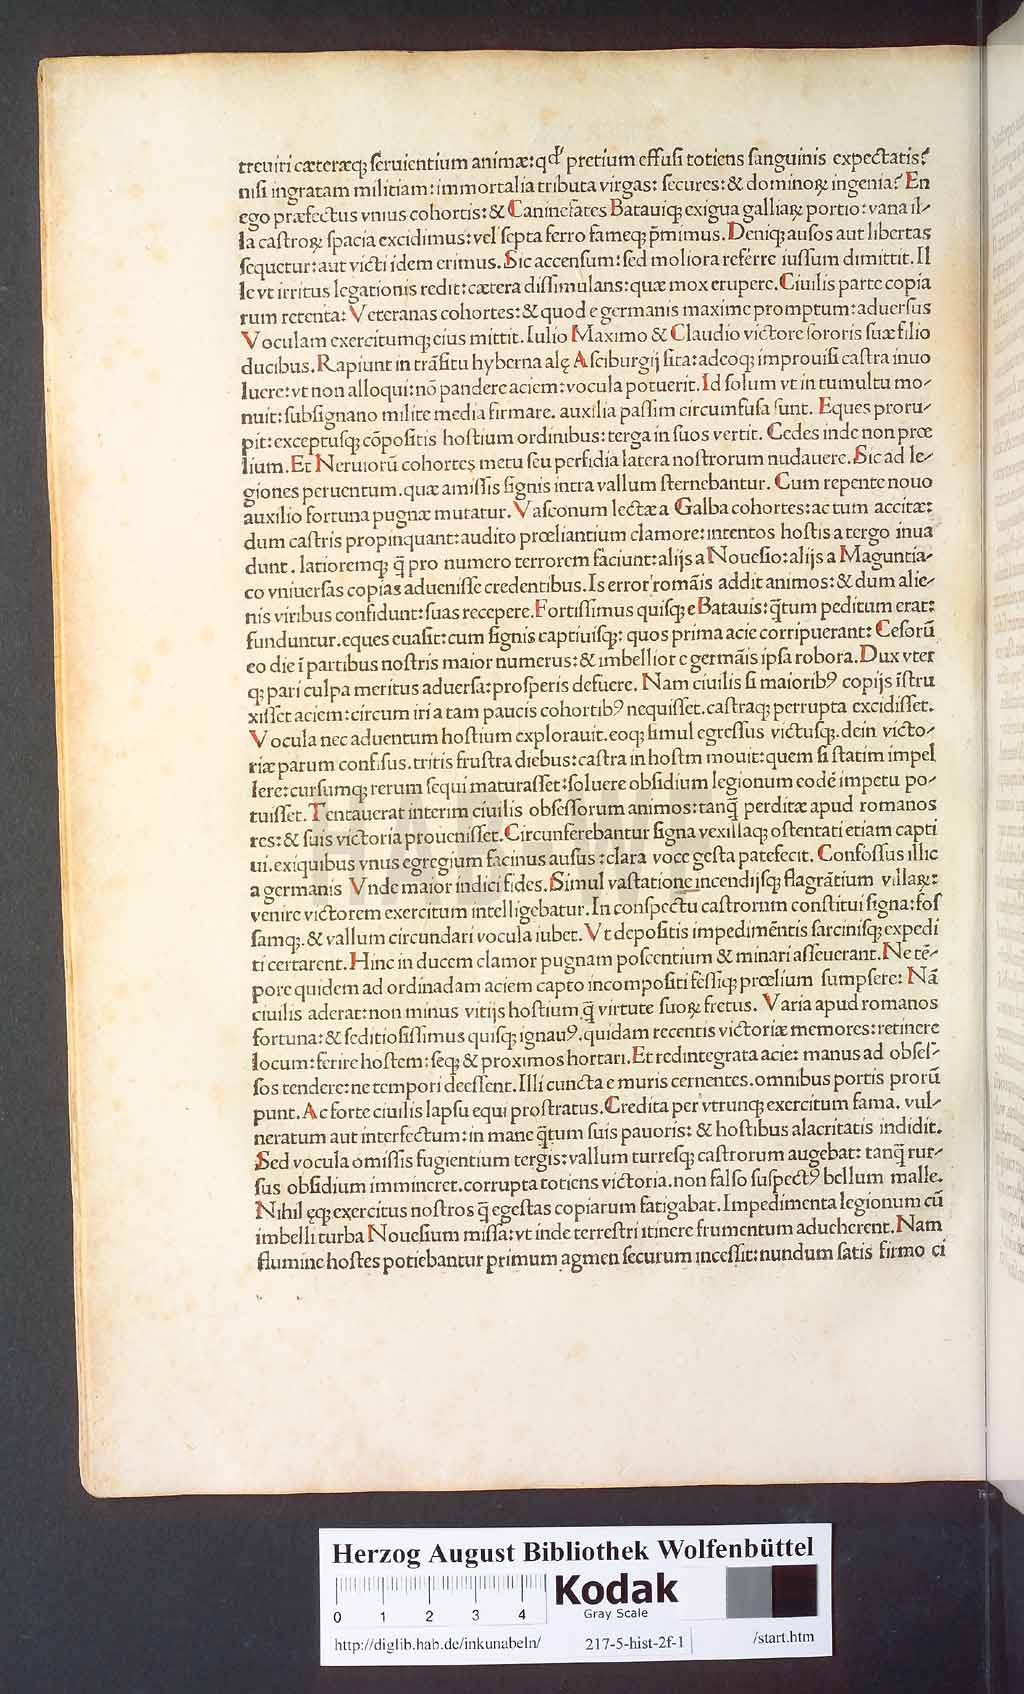 treuiri cæteræq; ſeruientium animæ: qđ pretium effuſi totiens ſanguinis expectatis?
niſi ingratam militiam: immortalia tributa virgas: ſecures: & dominoꝝ ingenia? En
ego præfectus vnius cohortis: & Caninefates Batauiq; exigua galliaꝝ portio: vana il-
la caſtroꝝ ſpacia excidimus: vel ſepta ferro fameq; p̄mimus. Deniq; auſos aut libertas
ſequetur: aut victi idem erimus. Sic accenſum: ſed moliora referre iuſſum dimittit. Il
le vt irritus legationis redit: cætera diſſimulans: quæ mox erupere. Ciuilis parte copia
rum retenta: Veteranas cohortes: & quod e germanis maxime promptum: aduerſus
Voculam exercitumq; eius mittit. Iulio Maximo & Claudio victore ſororis ſuæ filio
ducibus. Rapiunt in trāſitu hyberna alę Aſciburgij ſita: adeoq; improuiſi caſtra inuo
luere: vt non alloqui: nō pandere aciem: vocula potuerit. Id ſolum vt in tumultu mo-
nuit: ſubſignano milite media firmare. auxilia paſſim circumfuſa ſunt. Eques proru-
pit: exceptuſq; cōpoſitis hoſtium ordinibus: terga in ſuos vertit. Cedes inde non prœ
lium. Et Neruiorū cohortes metu ſeu perfidia latera noſtrorum nudauere. Sic ad le-
giones peruentum. quæ amiſſis ſignis intra vallum ſternebantur. Cum repente nouo
auxilio fortuna pugnæ mutatur. Vaſconum lectæ a Galba cohortes: ac tum accitæ:
dum caſtris propinquant: audito prœliantium clamore: intentos hoſtis a tergo inua
dunt. latioremq; q̄ pro numero terrorem faciunt: alijs a Noueſio: alijs a Maguntia-
co vniuerſas copias adueniſſe credentibus. Is error romāis addit animos: & dum alie-
nis viribus confidunt: ſuas recepere. Fortiſſimus quiſq; e Batauis: q̄tum peditum erat:
funduntur. eques euaſit: cum ſignis captiuiſq; quos prima acie corripuerant: Ceſorū
eo die ī partibus noſtris maior numerus: & imbellior e germāis ipſa robora. Dux vter
q; pari culpa meritus aduerſa: proſperis defuere. Nam ciuilis ſi maioribꝰ copijs īſtru
xiſſet aciem: circum iri a tam paucis cohortibꝰ nequiſſet. caſtraq; perrupta excidiſſet.
Vocula nec aduentum hoſtium explorauit. eoq; ſimul egreſſus victuſq;. dein victo-
riæ parum confiſus. tritis fruſtra diebus: caſtra in hoſtm mouit: quem ſi ſtatim impel
lere: curſumq; rerum ſequi maturaſſet: ſoluere obſidium legionum eodē impetu po-
tuiſſet. Tentauerat interim ciuilis obſeſſorum animos: tanq̄ perditæ apud romanos
res: & ſuis victoria proueniſſet. Circunferebantur ſigna vexillaq; oſtentati etiam capti
ui. ex iquibus vnus egregium facinus auſus: clara voce geſta patefecit. Confoſſus illic
a germanis Vnde maior indici fides. Simul vaſtatione incendijſq; flagrātium villaꝝ:
venire victorem exercitum intelligebatur. In conſpectu caſtrorum conſtitui ſigna: foſ
ſamq;. & vallum circundari vocula iubet. Vt depoſitis impedimēntis ſarciniſq; expedi
ti certarent. Hinc in ducem clamor pugnam poſcentium & minari aſſeuerant. Ne tē-
pore quidem ad ordinadam aciem capto incompoſiti feſſiq; prœlium ſumpſere: Nā
ciuilis aderat: non minus vitijs hoſtium q̄ virtute ſuoꝝ fretus. Varia apud romanos
fortuna: & ſeditioſiſſimus quiſq; ignauꝰ. quidam recentis victoriæ memores: retinere
locum: ferire hoſtem: ſeq; & proximos hortari. Et redintegrata acie: manus ad obſeſ-
ſos tendere: ne tempori deeſſent. Illi cuncta e muris cernentes. omnibus portis prorū
punt. Ac forte ciuilis lapſu equi proſtratus. Credita per vtrunq; exercitum fama. vul-
neratum aut interfectum: in mane q̄tum ſuis pauoris: & hoſtibus alacritatis indidit.
Sed vocula omiſſis fugientium tergis: vallum turreſq; caſtrorum augebat: tanq̄ rur-
ſus obſidium immineret. corrupta totiens victoria. non falſo ſuſpectꝰ bellum malle.
Nihil ęq; exercitus noſtros q̄ egeſtas copiarum fatigabat. Impedimenta legionum cū
imbelli turba Noueſium miſſa: vt inde terreſtri itinere frumentum adueherent. Nam
flumine hoſtes potiebantur primum agmen ſecurum inceſſit: nundum ſatis firmo ci
HAB-WF
Herzog August Bibliothek Wolfenbüttel
0 1 2 3 4
Kodak
Gray Scale
http://diglib.hab.de/inkunabeln/ 217-5-hist-2f-1 /start.htm